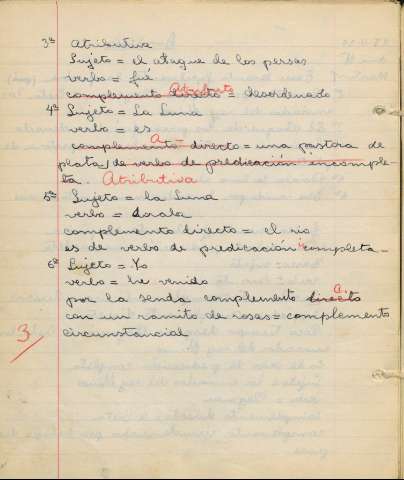 3ª Atributiva
Sujeto = el ataque de los persas
verbo = fué
Atributo
complemento directo = desordenado
4ª Sujeto = La Luna
verbo = es
A
complemento directo = una pastora de
plata / de verbo de predicación incomple-
ta. Atributiva
5ª Sujeto = la Luna
verbo = doraba
complemento directo = el rio
es de verbo de predicación completa-
6ª Sujeto = Yo
verbo = he venido
a.
por la senda complemento directo
con un ramito de rosas = complemento
3 circunstancial